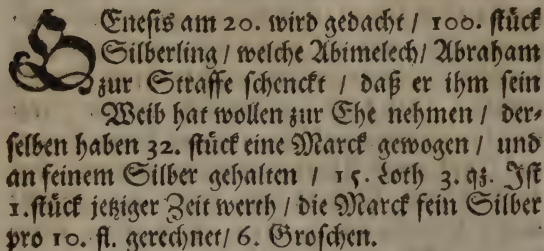 GEnesis am 20. wird gedacht / 100. stück
Silberling / welche Abimelech / Abraham
zur Straffe schenckt / daß er ihm sein
Weib hat wollen zur Ehe nehmen / der-
selben haben 32. stück eine Marck gewogen / und
an feinem Silber gehalten / 15. Loth 3. qz. Ist
1. stück jetziger Zeit werth / die Marck fein Silber
pro 10. fl. gerechnet / 6. Groschen.